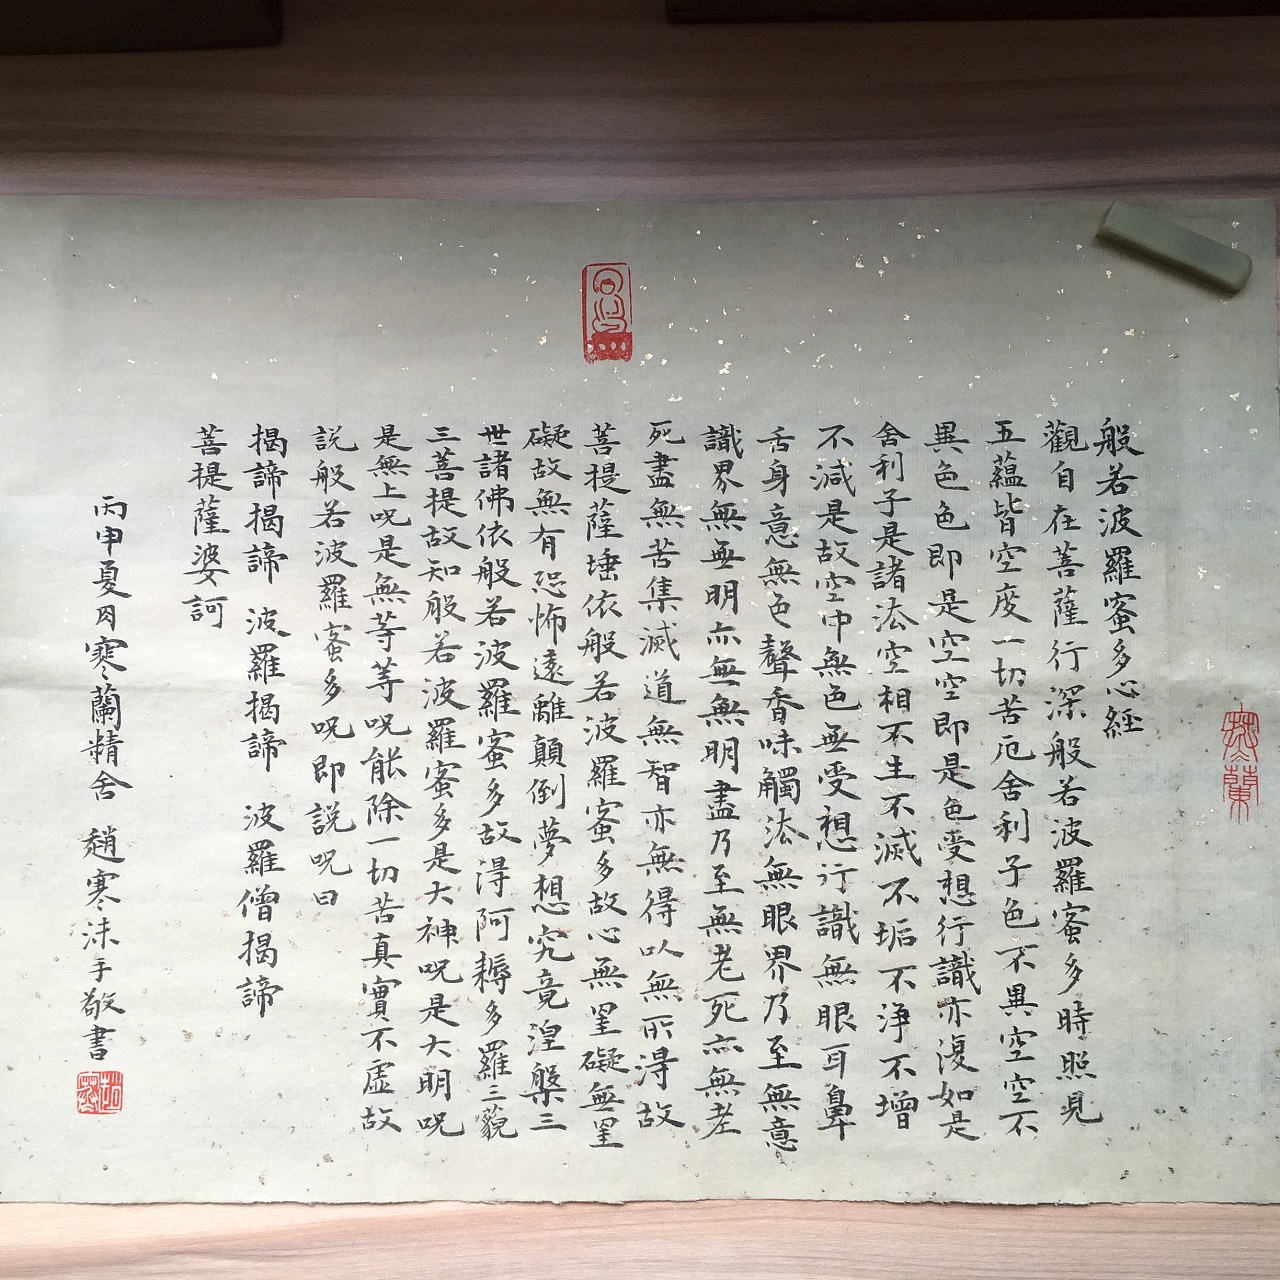 般若波羅蜜多心經
觀自在菩薩行深般若波羅蜜多時照見
五蘊皆空度一切苦厄舍利子色不異空空不
異色色即是空空即是色受想行識亦復如是
舍利子是諸法空相不生不滅不垢不淨不增
不減是故空中無色無受想行識無眼耳鼻
舌身意無色聲香味觸法無眼界乃至無意
識界無無明亦無無明盡乃至無老死亦無老
死盡無苦集滅道無智亦無得以無所得故
菩提薩埵依般若波羅蜜多故心無罣礙無罣
礙故無有恐怖遠離顛倒夢想究竟涅槃三
世諸佛依般若波羅蜜多故得阿耨多羅三藐
三菩提故知般若波羅蜜多是大神呪是大明呪
是無上呪是無等等呪能除一切苦真實不虛故
説般若波羅蜜多呪即説呪曰
揭諦揭諦 波羅揭諦 波羅僧揭諦
菩提薩婆訶
丙申夏月寒蘭精舍 趙寒沫子敬書